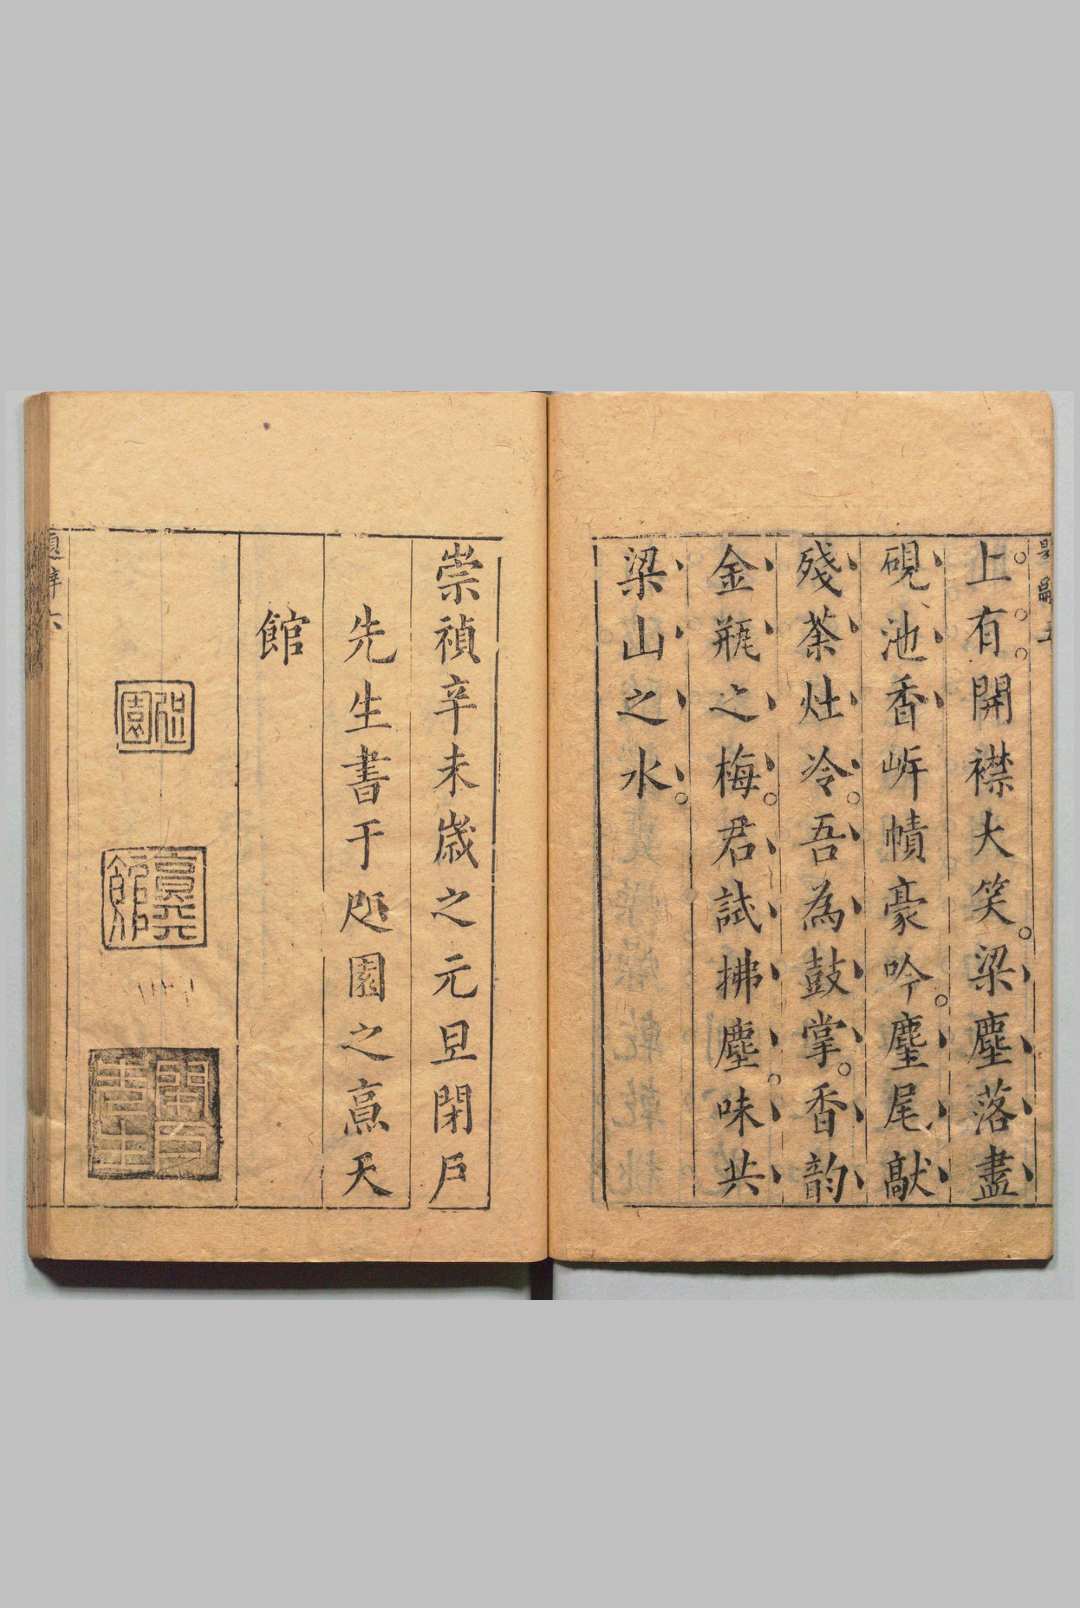 上有開襟大笑。梁塵落盡
硯池香岸幘豪吟。麈尾敲
殘茶灶冷。吾為鼓掌。香韵
金瓶之梅。君試拂塵。味共
梁山之水。
崇禎辛未歲之元旦閉戶
先生書于咫園之高天
館
題辭六
咫園